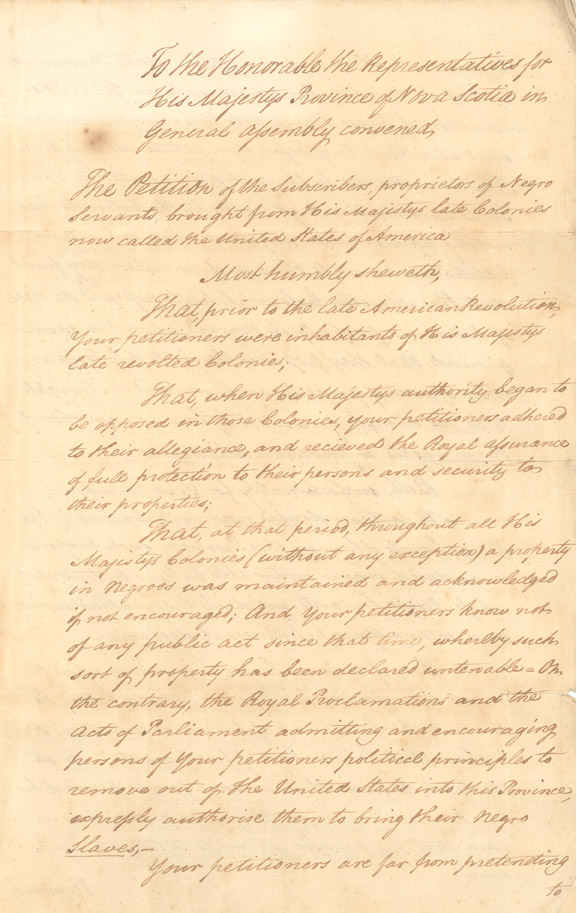 To the Honorable the Representatives for
His Majestys Province of Nova Scotia in
General assembly convened,
The Petition of the Subscribers, proprietors of Negro
Servants, brought from His Majestys late Colonies
now called the United States of America
Most humbly sheweth,
That, prior to the late American Revolution,
Your petitioners were inhabitants of His Majestys
late revolted Colonies;
That, when His Majestys authority began to
be opposed in those Colonies, your petitioners adhered
to their allegiance, and recieved the Royal assurance
of full protection to their persons and security to
their properties;
That, at that period, throughout all His
Majestys Colonies (without any exception) a property
in Negroes was maintained and acknowledged
if not encouraged; And Your petitioners know not
of any public act since that time, whereby such
sort of property has been declared untenable = On
the contrary, the Royal Proclamations and the
Acts of Parliament admitting and encouraging
persons of Your petitioners political principles to
remove out of the United States into this Province,
expressly authorise them to bring their Negro
Slaves,-
Your petitioners are far from pretending
to